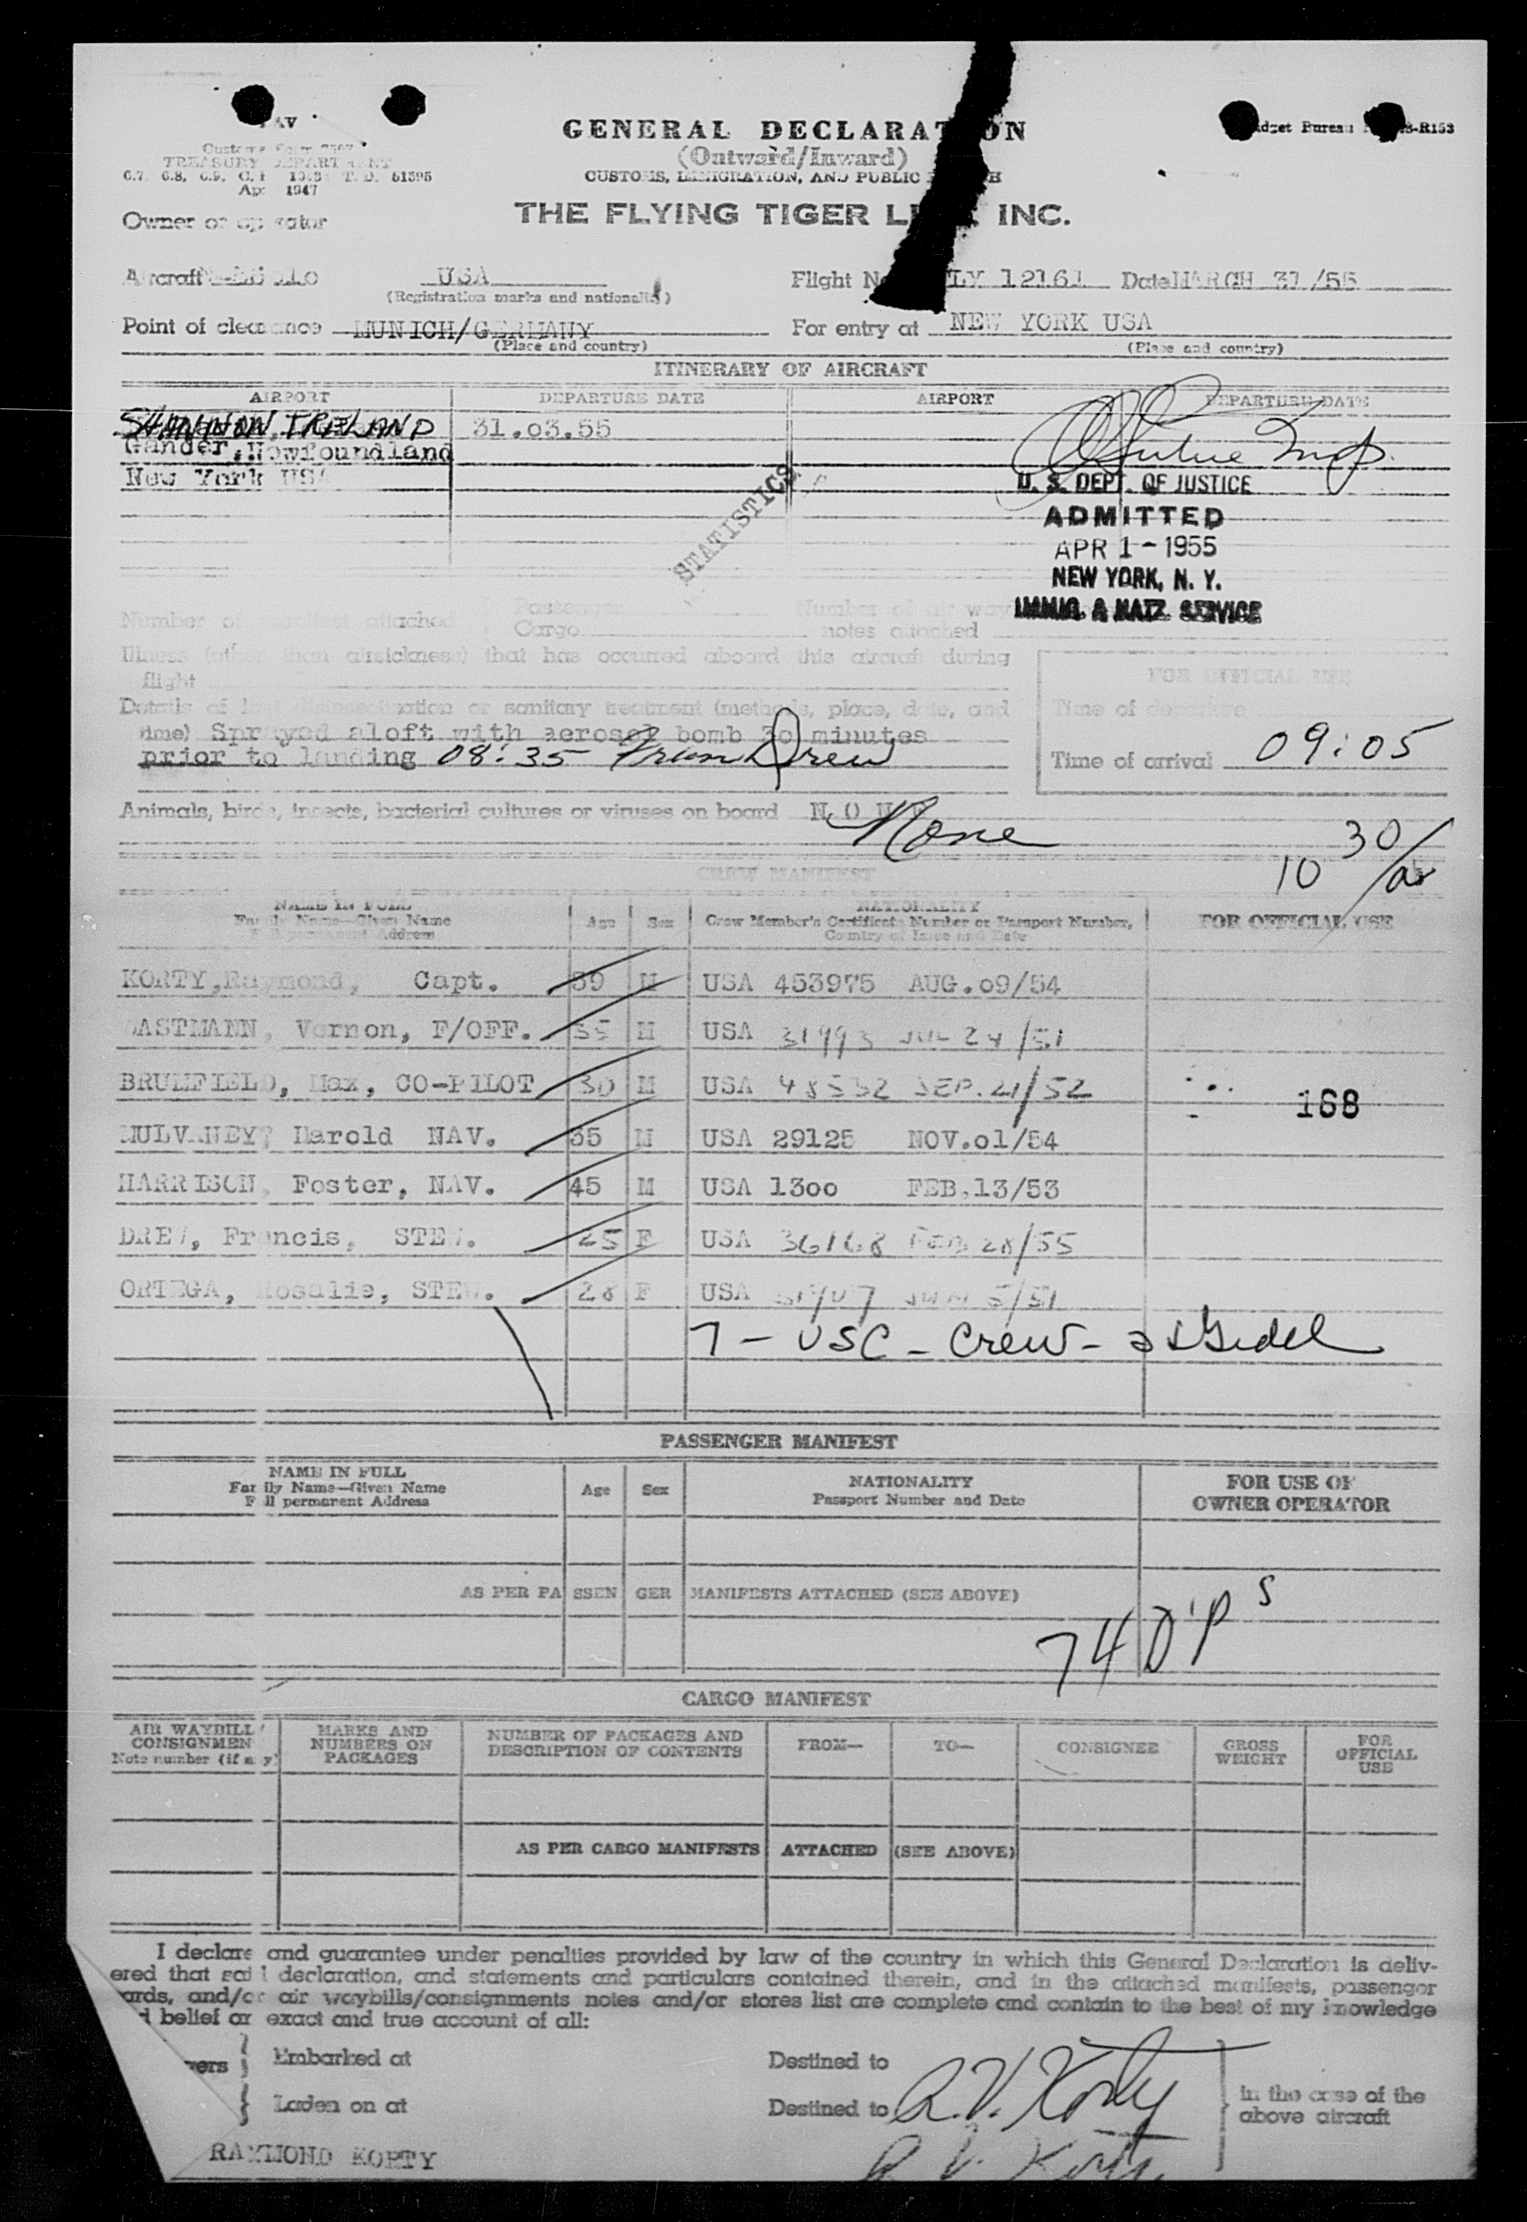 GENERAL DECLARATION
(Outward/Inward)
Customs Form 7507
TREASURY DEPARTMENT
CUSTOMS, IMMIGRATION, AND PUBLIC
T. D. 51595
1947
THE FLYING TIGER LINE INC.
Owner or operator
Aircraft USA Flight No. 12161 Date MARCH 31/55
(Registration marks and nationality)
Point of clearance MUNICH/GERMANY For entry at NEW YORK USA
(Place and country) (Place and country)
ITINERARY OF AIRCRAFT
AIRPORT DEPARTURE DATE AIRPORT DEPARTURE DATE
SHANNON, IRELAND 31.03.55
Gander, Newfoundland
New York USA
STATISTICS
U. S. DEPT. OF JUSTICE
ADMITTED
APR 1 - 1955
NEW YORK, N. Y.
IMMIG. & NATZ. SERVICE
Number of attached Passenger Number of air way
Cargo notes attached
Illness (other than airsickness) that has occurred aboard this aircraft during
flight
FOR OFFICIAL USE
Details of last disinsectization or sanitary treatment (methods, place, date, and Time of departure
time) Sprayed aloft with aerosol bomb 30 minutes
prior to landing 08:35 Fran Drew Time of arrival 09:05
Animals, birds, insects, bacterial cultures or viruses on board NONE
None
30/
10
CREW MANIFEST
NAME IN FULL NATIONALITY
Family Name—Given Name Age Sex Crew Member's Certificate Number or Passport Number, FOR OFFICIAL USE
Full permanent Address Country of Issue and Date
KORTY, Raymond, Capt. 39 M USA 453975 AUG.09/54
EASTMANN, Vernon, F/OFF. 35 M USA 31993 JUL 24/51
BRUMFIELD, Max, CO-PILOT 30 M USA 48552 SEP. 21/52
168
MULVANEY, Harold NAV. 35 M USA 29125 NOV.01/54
HARRISON, Foster, NAV. 45 M USA 1300 FEB.13/53
DREW, Francis, STEW. 25 F USA 36168 FEB 28/55
ORTEGA, Rosalie, STEW. 28 F USA 5/51
7 - USC - Crew -
PASSENGER MANIFEST
NAME IN FULL NATIONALITY FOR USE OF
Family Name—Given Name Age Sex Passport Number and Date OWNER OPERATOR
Full permanent Address
AS PER PASSENGER MANIFESTS ATTACHED (SEE ABOVE)
74 DP's
CARGO MANIFEST
AIR WAYBILL/ MARKS AND NUMBER OF PACKAGES AND FROM— TO— CONSIGNEE GROSS FOR
CONSIGNMEN NUMBERS ON DESCRIPTION OF CONTENTS WEIGHT OFFICIAL
Note number (if any) PACKAGES USE
AS PER CARGO MANIFESTS ATTACHED (SEE ABOVE)
I declare and guarantee under penalties provided by law of the country in which this General Declaration is deliv-
ered that said declaration, and statements and particulars contained therein, and in the attached manifests, passenger
ards, and/or air waybills/consignments notes and/or stores list are complete and contain to the best of my knowledge
d belief an exact and true account of all:
Embarked at Destined to
Laden on at Destined to in the case of the
above aircraft
R.V. Korty
RAYMOND KORTY R. V. Korty